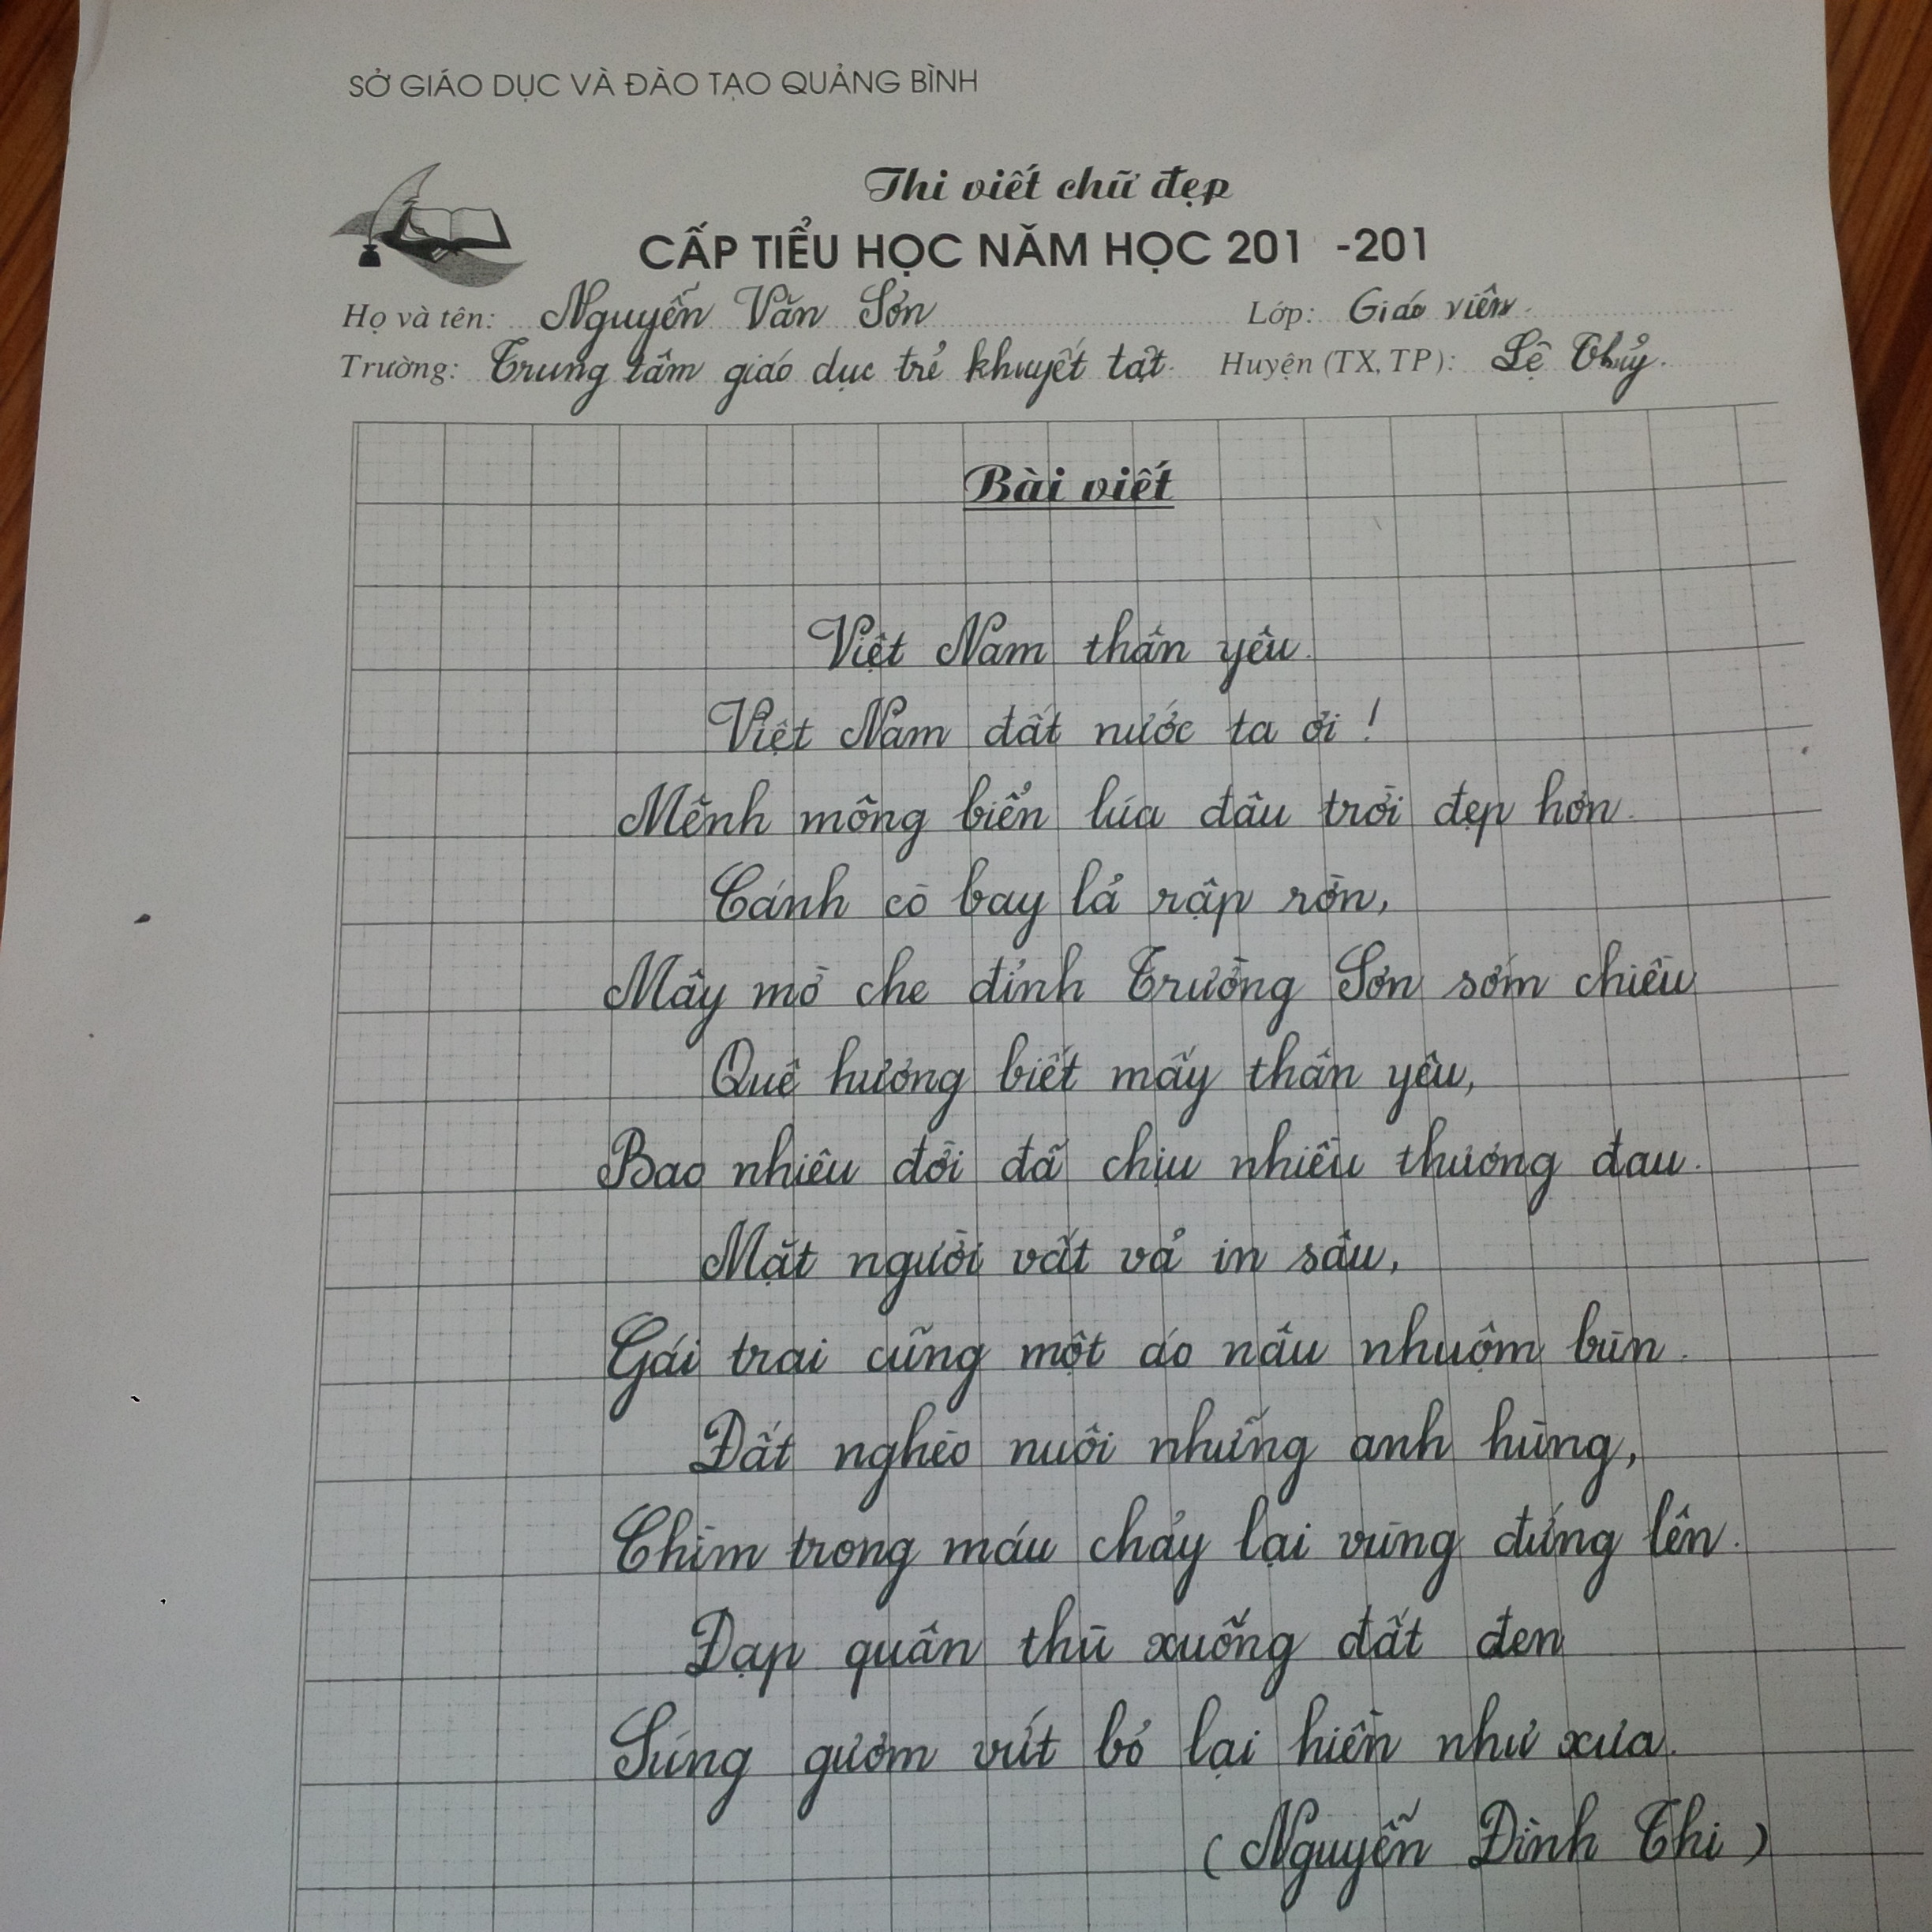 SỞ GIÁO DỤC VÀ ĐÀO TẠO QUẢNG BÌNH
Thi viết chữ đẹp
CẤP TIỂU HỌC NĂM HỌC 201 -201
Họ và tên: Nguyễn Văn Sơn Lớp: Giáo viên.
Trường: Trung tâm giáo dục trẻ khuyết tật. Huyện (TX, TP): Lệ Thủy.
Bài viết
Việt Nam thân yêu.
Việt Nam đất nước ta ơi!
Mênh mông biển lúa đâu trời đẹp hơn.
Cánh cò bay lả rập rờn,
Mây mờ che đỉnh Trường Sơn sớm chiều
Quê hương biết mấy thân yêu,
Bao nhiêu đời đã chịu nhiều thương đau.
Mặt người vất vả in sâu,
Gái trai cũng một áo nâu nhuộm bùn.
Đất nghèo nuôi những anh hùng,
Chìm trong máu chảy lại vùng đứng lên.
Đạp quân thù xuống đất đen
Súng gươm vứt bỏ lại hiền như xưa.
(Nguyễn Đình Thi)